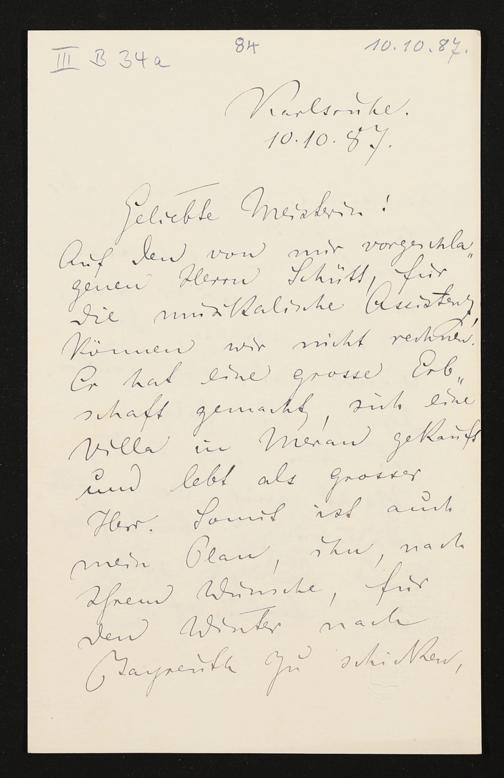 III B 34a
84
10.10.87.
Karlsruhe.
10.10.87.
Geliebte Meisterin!
Auf den von mir vorgeschla„
genen Herrn Schütt, für
die musikalische Assistenz,
können wir nicht rechnen.
Er hat eine grosse Erb„
schaft gemacht, sich eine
Villa in Meran gekauft
und lebt als grosser
Herr. Somit ist auch
mein Plan, ihn, nach
Ihrem Wunsche, für
den Winter nach
Bayreuth zu schicken,